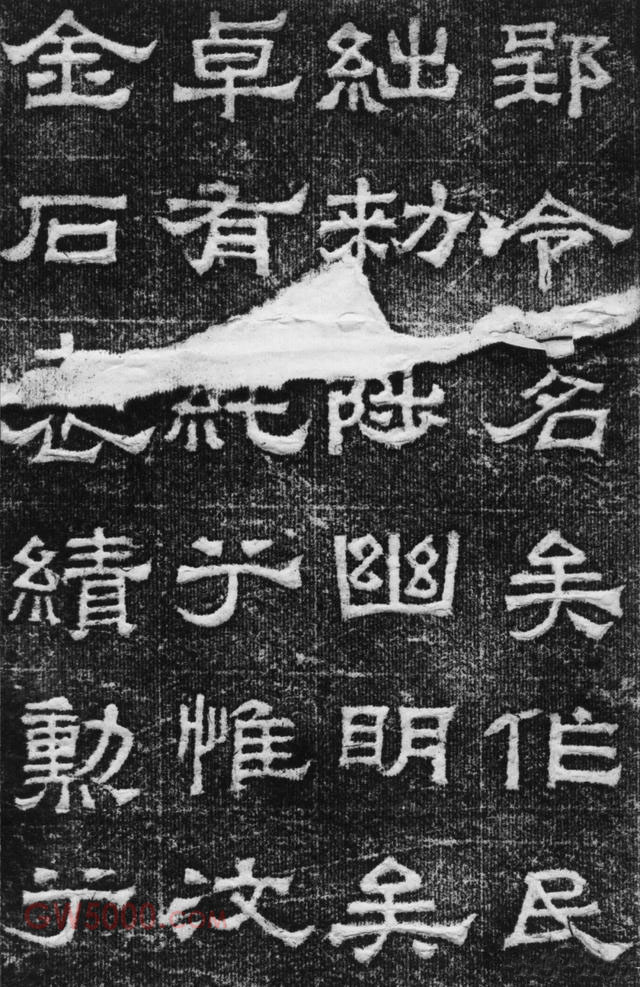 郢令名矣作民
絀勑陟幽明矣
卓有純于惟汶
金石表績勳于
GW5000.com